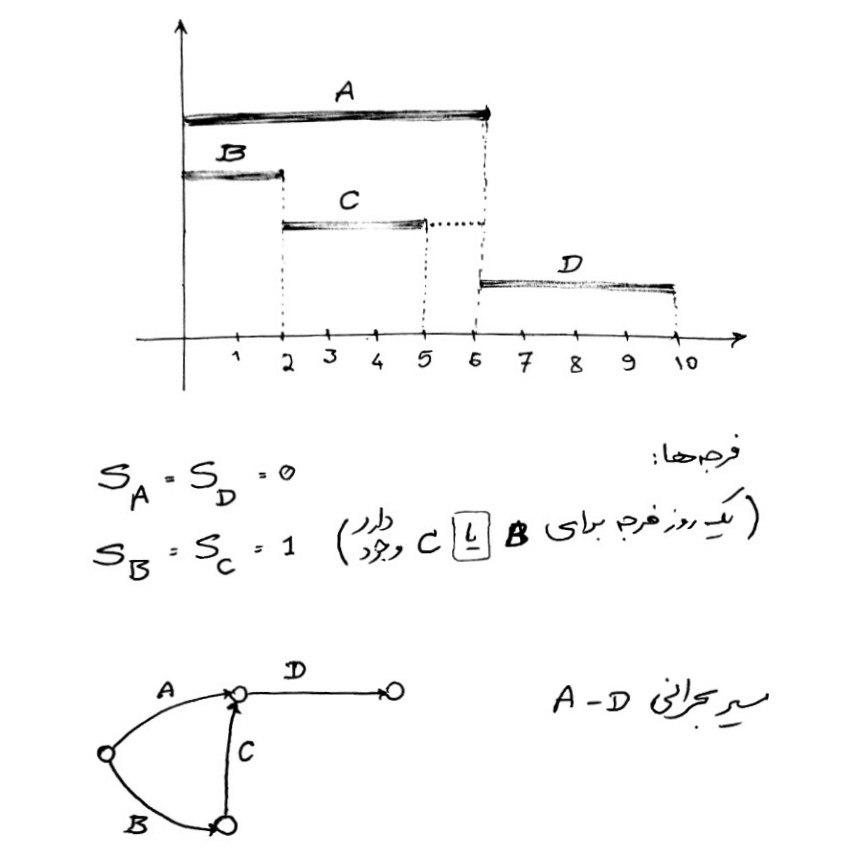 A
B
C
D
1 2 3 4 5 6 7 8 9 10
فرجه‌ها:
S_A = S_D = 0
S_B = S_C = 1 (یک روز فرجه برای B یا C وجود دارد)
A D
C
B
مسیر بحرانی A-D